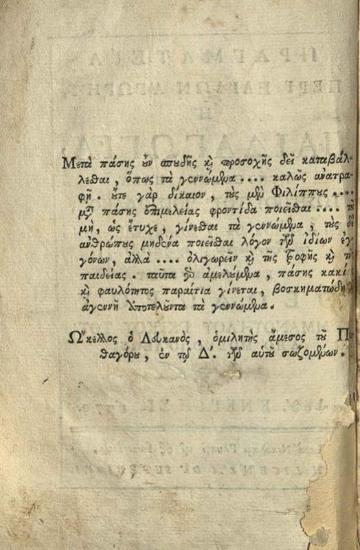 Μετὰ πάσης ὖν σπυδῆς κ̀ προσοχῆς δεῖ καταβάλ-
λεσθαι, ὅπως τὰ γεννώμενα .... καλῶς ἀνατρα-
φῇ. ὔτε γὰρ δίκαιον, τὺς μὲν Φιλίππυς ....
μετὰ πάσης ἐπιμελείας φροντίδα ποιεῖσθαι ....
μὴ, ὡς ἔτυχε, γίνεσθαι τὰ γεννώμενα, τὺς δὲ
ἀνθρώπυς μηδένα ποιεῖσθαι λόγον τῶν ἰδίων ἐγ-
γόνων, ἀλλὰ .... ὀλιγωρεῖν κ̀ τῆς τροφῆς κ̀ τ
παιδείας. ταῦτα γὰρ ἀμελούμενα, πάσης κακί
κ̀ φαυλότητος παραίτια γίνεται, βοσκηματώδη
ἀγεννῆ ἀποτελοῦντα τὰ γεννώμενα.
Ὤκελλος ὁ Λυκανὸς, ὁμιλητὴς ἄμεσος τῦ Πυ
θαγόρυ, ἐν τῷ Δ'. τῶν αὐτῦ σωζομένων.